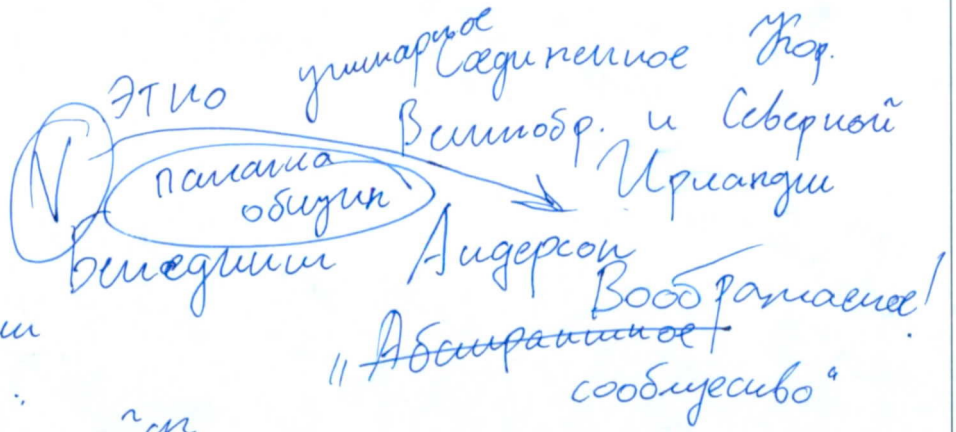 Этно унитарное Соединенное Кор.
Великобр. и Северной
Ирландии
N палата
общин
Бенедикт Андерсон
Воображаемое!
„Абстрактное
сообщество“